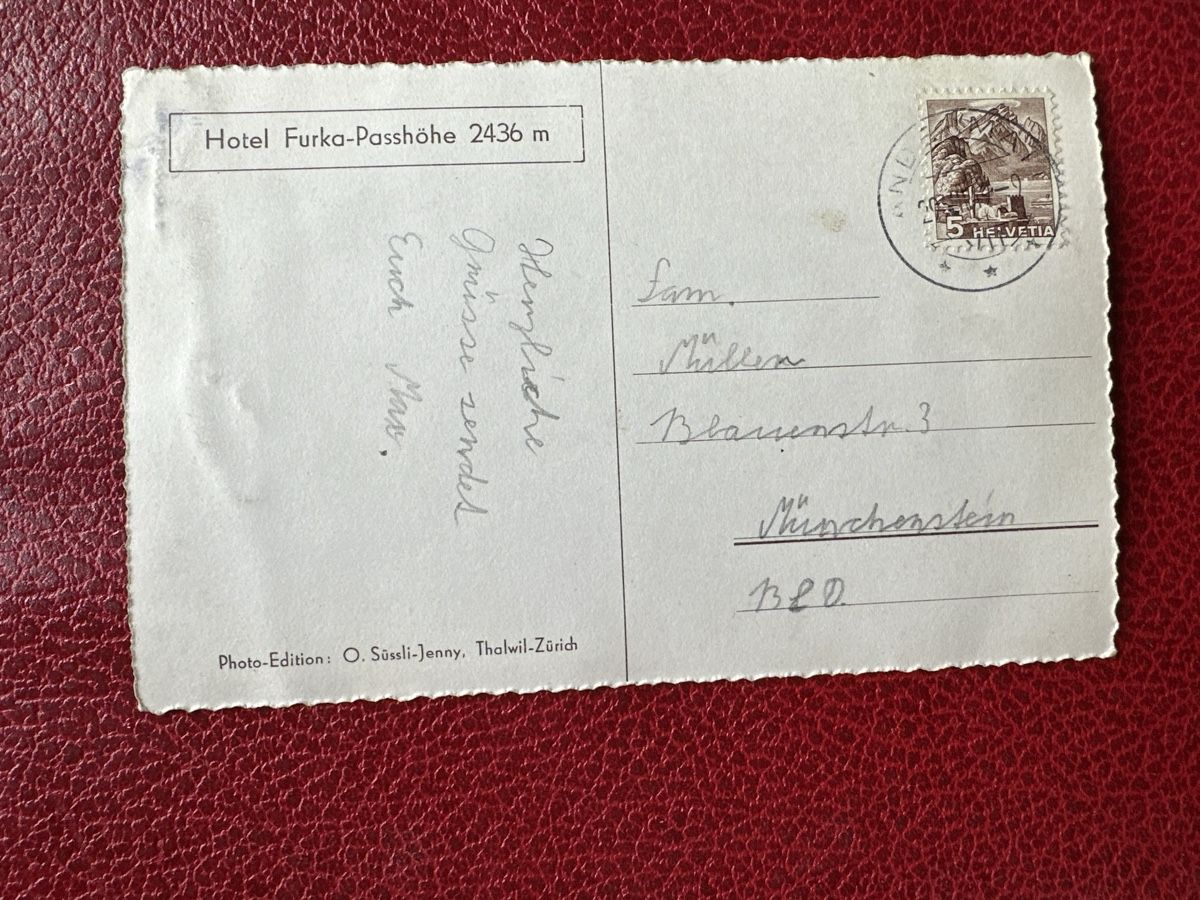 Hotel Furka-Passhöhe 2436 m
Herzliche
Grüsse sendet
Euch Max.
Photo-Edition: O. Süssli-Jenny, Thalwil-Zürich
5 HELVETIA
Fam.
Müller
Blauenstr. 3
Münchenstein